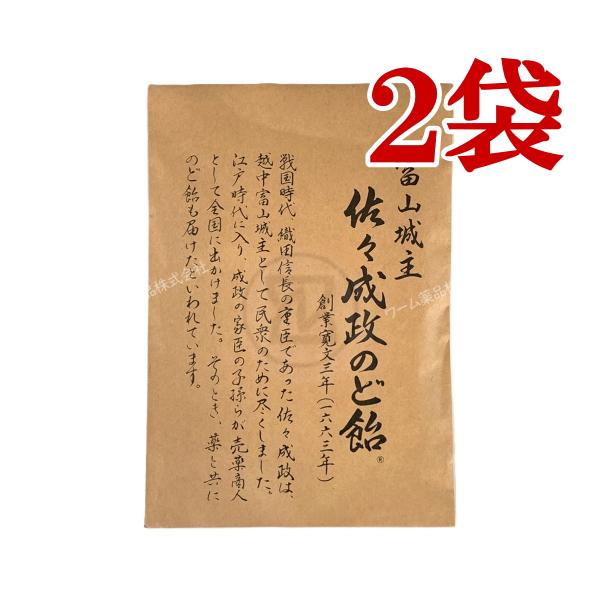 2袋
富山城主
佐々成政のど飴®
創業寛文三年(一六六三年)
戦国時代 織田信長の重臣であった佐々成政は、
越中富山城主として民衆のために尽くしました。
江戸時代に入り、成政の家臣の子孫らが売薬商人
として全国に出かけました。そのとき、薬と共に
のど飴も届けたといわれています。
品株式会社
ワーム薬品